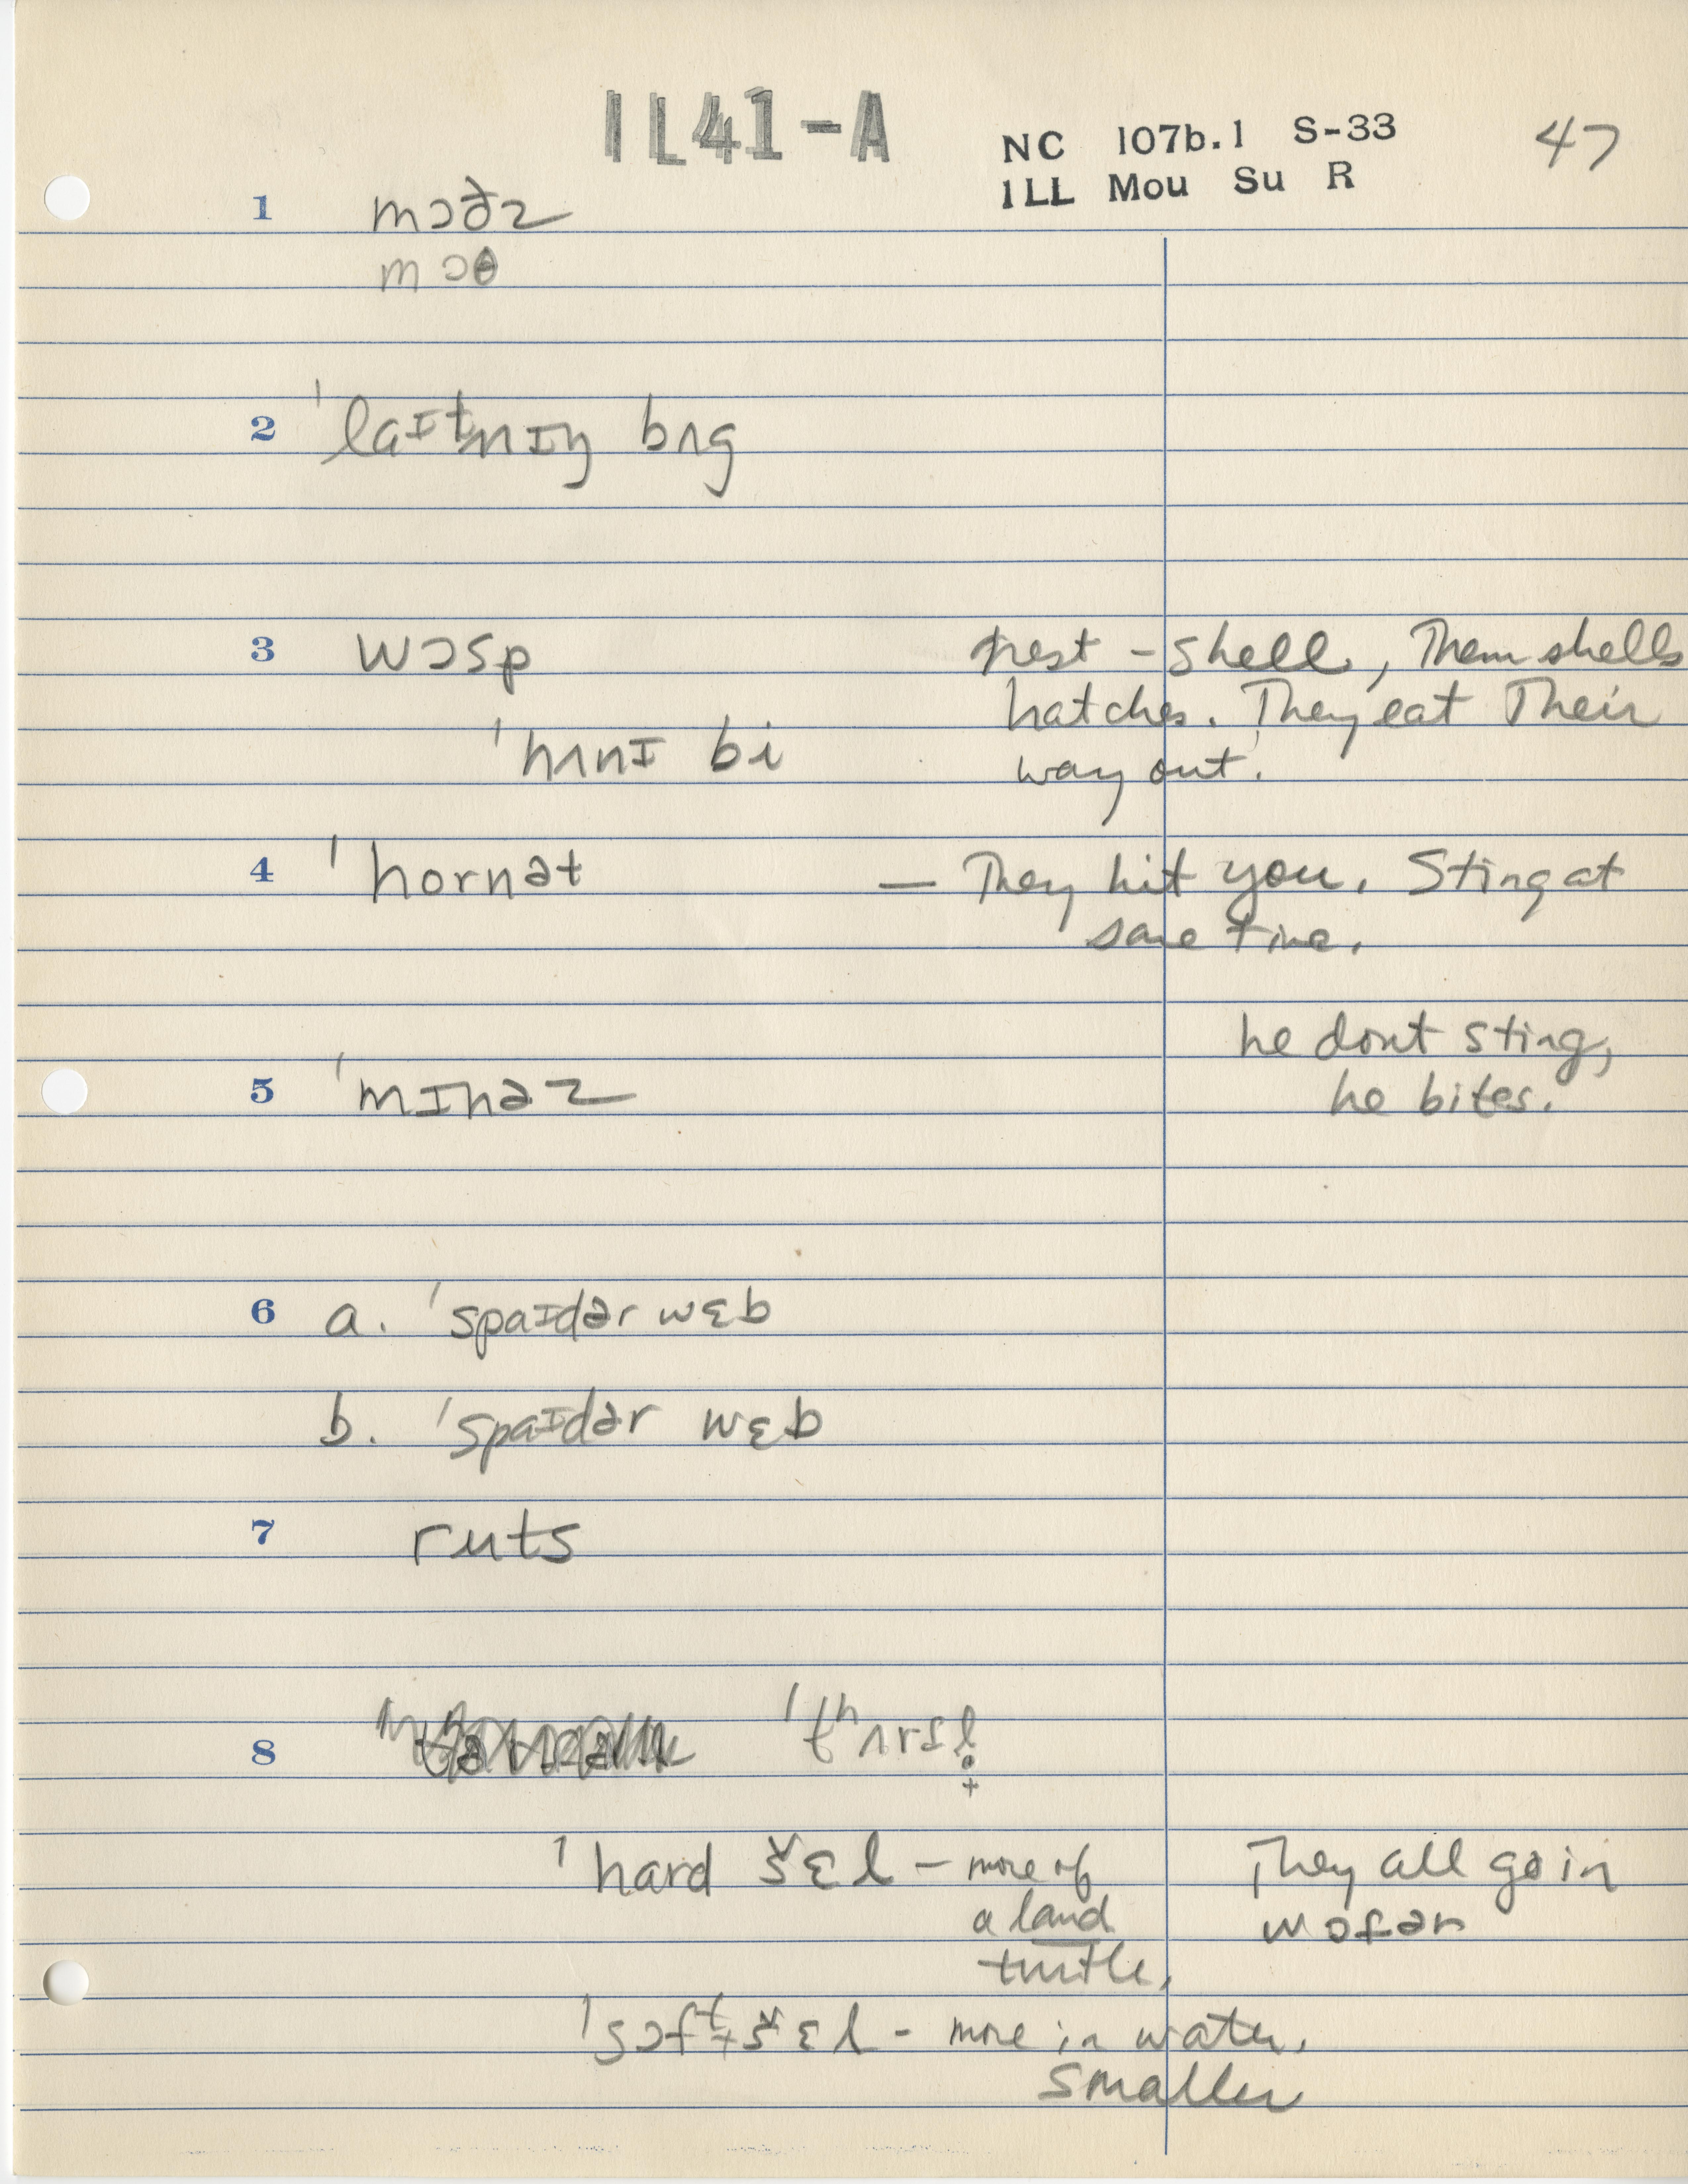 1L41-A
NC 107b.1 S-33 47
ILL Mou Su R
1 mɔðz
mɔθ
2 ˈlaɪtnɪŋ bʌg
3 wɔsp nest - shell, Them shells
hatches. They eat Their
ˈhʌnɪ bi way out.
4 ˈhornət — They hit you. Sting at
same time.
he dont sting,
5 ˈmɪnəz he bites.
6 a. ˈspaɪdər wɛb
b. ˈspaɪdər wɛb
7 ruts
8 ˈtʰʌrsl̥
ˈhard šɛl - more of They all go in
a land wɔfər
turtle,
ˈsɔft šɛl - more in water.
smaller